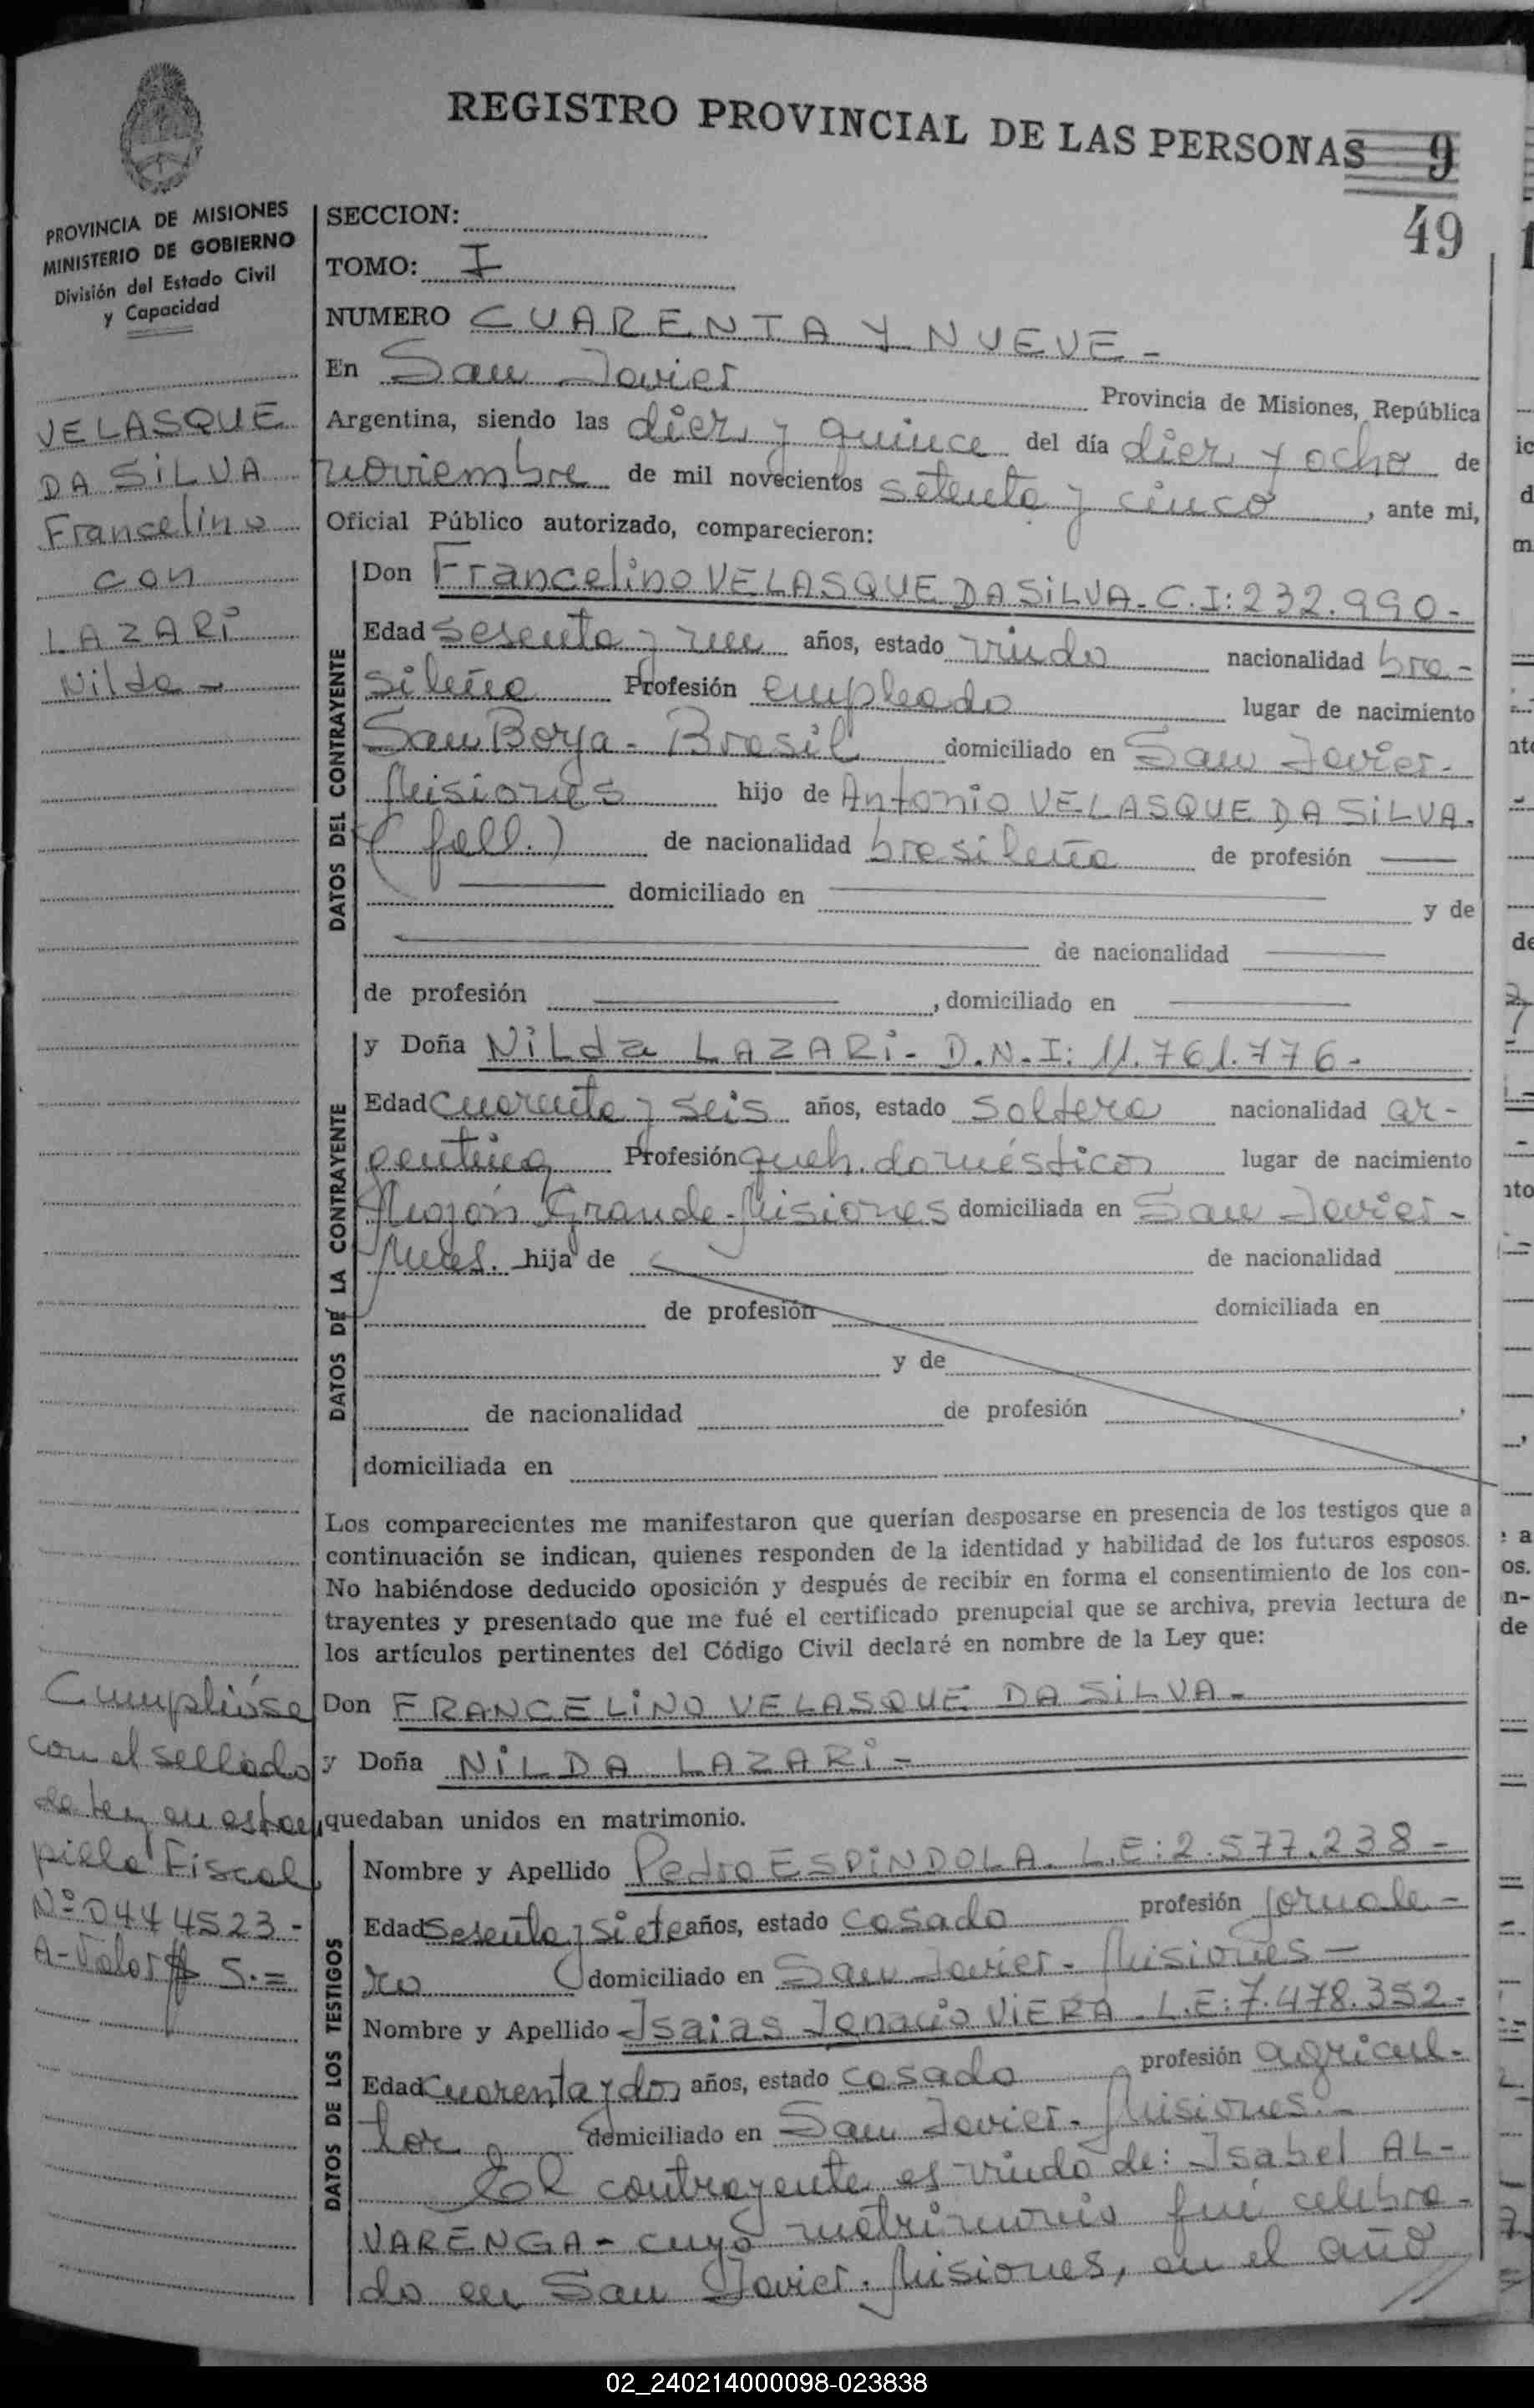 REGISTRO PROVINCIAL DE LAS PERSONAS 9
49
PROVINCIA DE MISIONES
MINISTERIO DE GOBIERNO
División del Estado Civil
y Capacidad
VELASQUE
DA SILVA
Francelino
con
LAZARI
Nilda -
SECCION:
TOMO: I
NUMERO CUARENTA Y NUEVE -
En San Javier Provincia de Misiones, República
Argentina, siendo las diez y quince del día diez y ocho de
noviembre de mil novecientos setenta y cinco, ante mi,
Oficial Público autorizado, comparecieron:
DATOS DEL CONTRAYENTE
Don Francelino VELASQUE DA SILVA. C.I: 232.990-
Edad sesenta y un años, estado viudo nacionalidad bra-
sileña Profesión empleado lugar de nacimiento
San Borja - Brasil domiciliado en San Javier-
Misiones hijo de Antonio VELASQUE DA SILVA.
(fall.) de nacionalidad brasileña de profesión
domiciliado en y de
de nacionalidad
de profesión , domiciliado en
DATOS DE LA CONTRAYENTE
y Doña Nilda LAZARI - D.N.I: 11.761.776-
Edad cuarenta y seis años, estado soltera nacionalidad ar-
gentina Profesión queh. domésticos lugar de nacimiento
Mojón Grande - Misiones domiciliada en San Javier-
Mnes. hija de de nacionalidad
de profesión domiciliada en
y de
de nacionalidad de profesión ,
domiciliada en
Los comparecientes me manifestaron que querían desposarse en presencia de los testigos que a
continuación se indican, quienes responden de la identidad y habilidad de los futuros esposos.
No habiéndose deducido oposición y después de recibir en forma el consentimiento de los con-
trayentes y presentado que me fué el certificado prenupcial que se archiva, previa lectura de
los artículos pertinentes del Código Civil declaré en nombre de la Ley que:
Don FRANCELINO VELASQUE DA SILVA -
y Doña NILDA LAZARI =
quedaban unidos en matrimonio.
Cumplióse
con el sellado
de ley en estam
pilla Fiscal
Nº 0444523 -
A - Valor $ 5.=
DATOS DE LOS TESTIGOS
Nombre y Apellido Pedro ESPINDOLA. L.E: 2.577.238 -
Edad Sesenta y siete años, estado casado profesión jornale-
ro domiciliado en San Javier - Misiones -
Nombre y Apellido Isaias Ignacio VIERA. L.E: 7.478.352-
Edad cuarenta y dos años, estado casado profesión agricul-
tor domiciliado en San Javier - Misiones.-
El contrayente es viudo de: Isabel AL-
VARENGA - cuyo matrimonio fué celebra-
do en San Javier. Misiones, en el año //
02_240214000098-023838